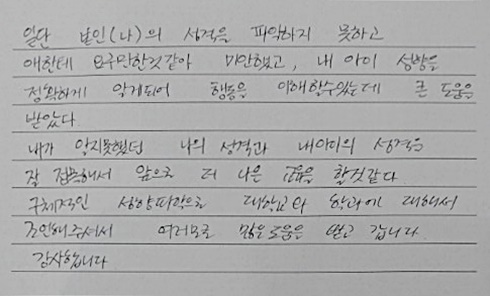 일단 본인(나)의 성격을 파악하지 못하고
애한테 요구만한것같아 미안했고, 내 아이 성향을
정확하게 알게되어 행동을 이해할수있는데 큰 도움을
받았다.
내가 알지못했던 나의 성격과 내아이의 성격을
잘 접목해서 앞으로 더 나은 교육을 할것같다
구체적인 성향파악으로 대학교와 학과에 대해서
조언해주셔서 여러모로 많은도움을 얻고 갑니다
감사합니다